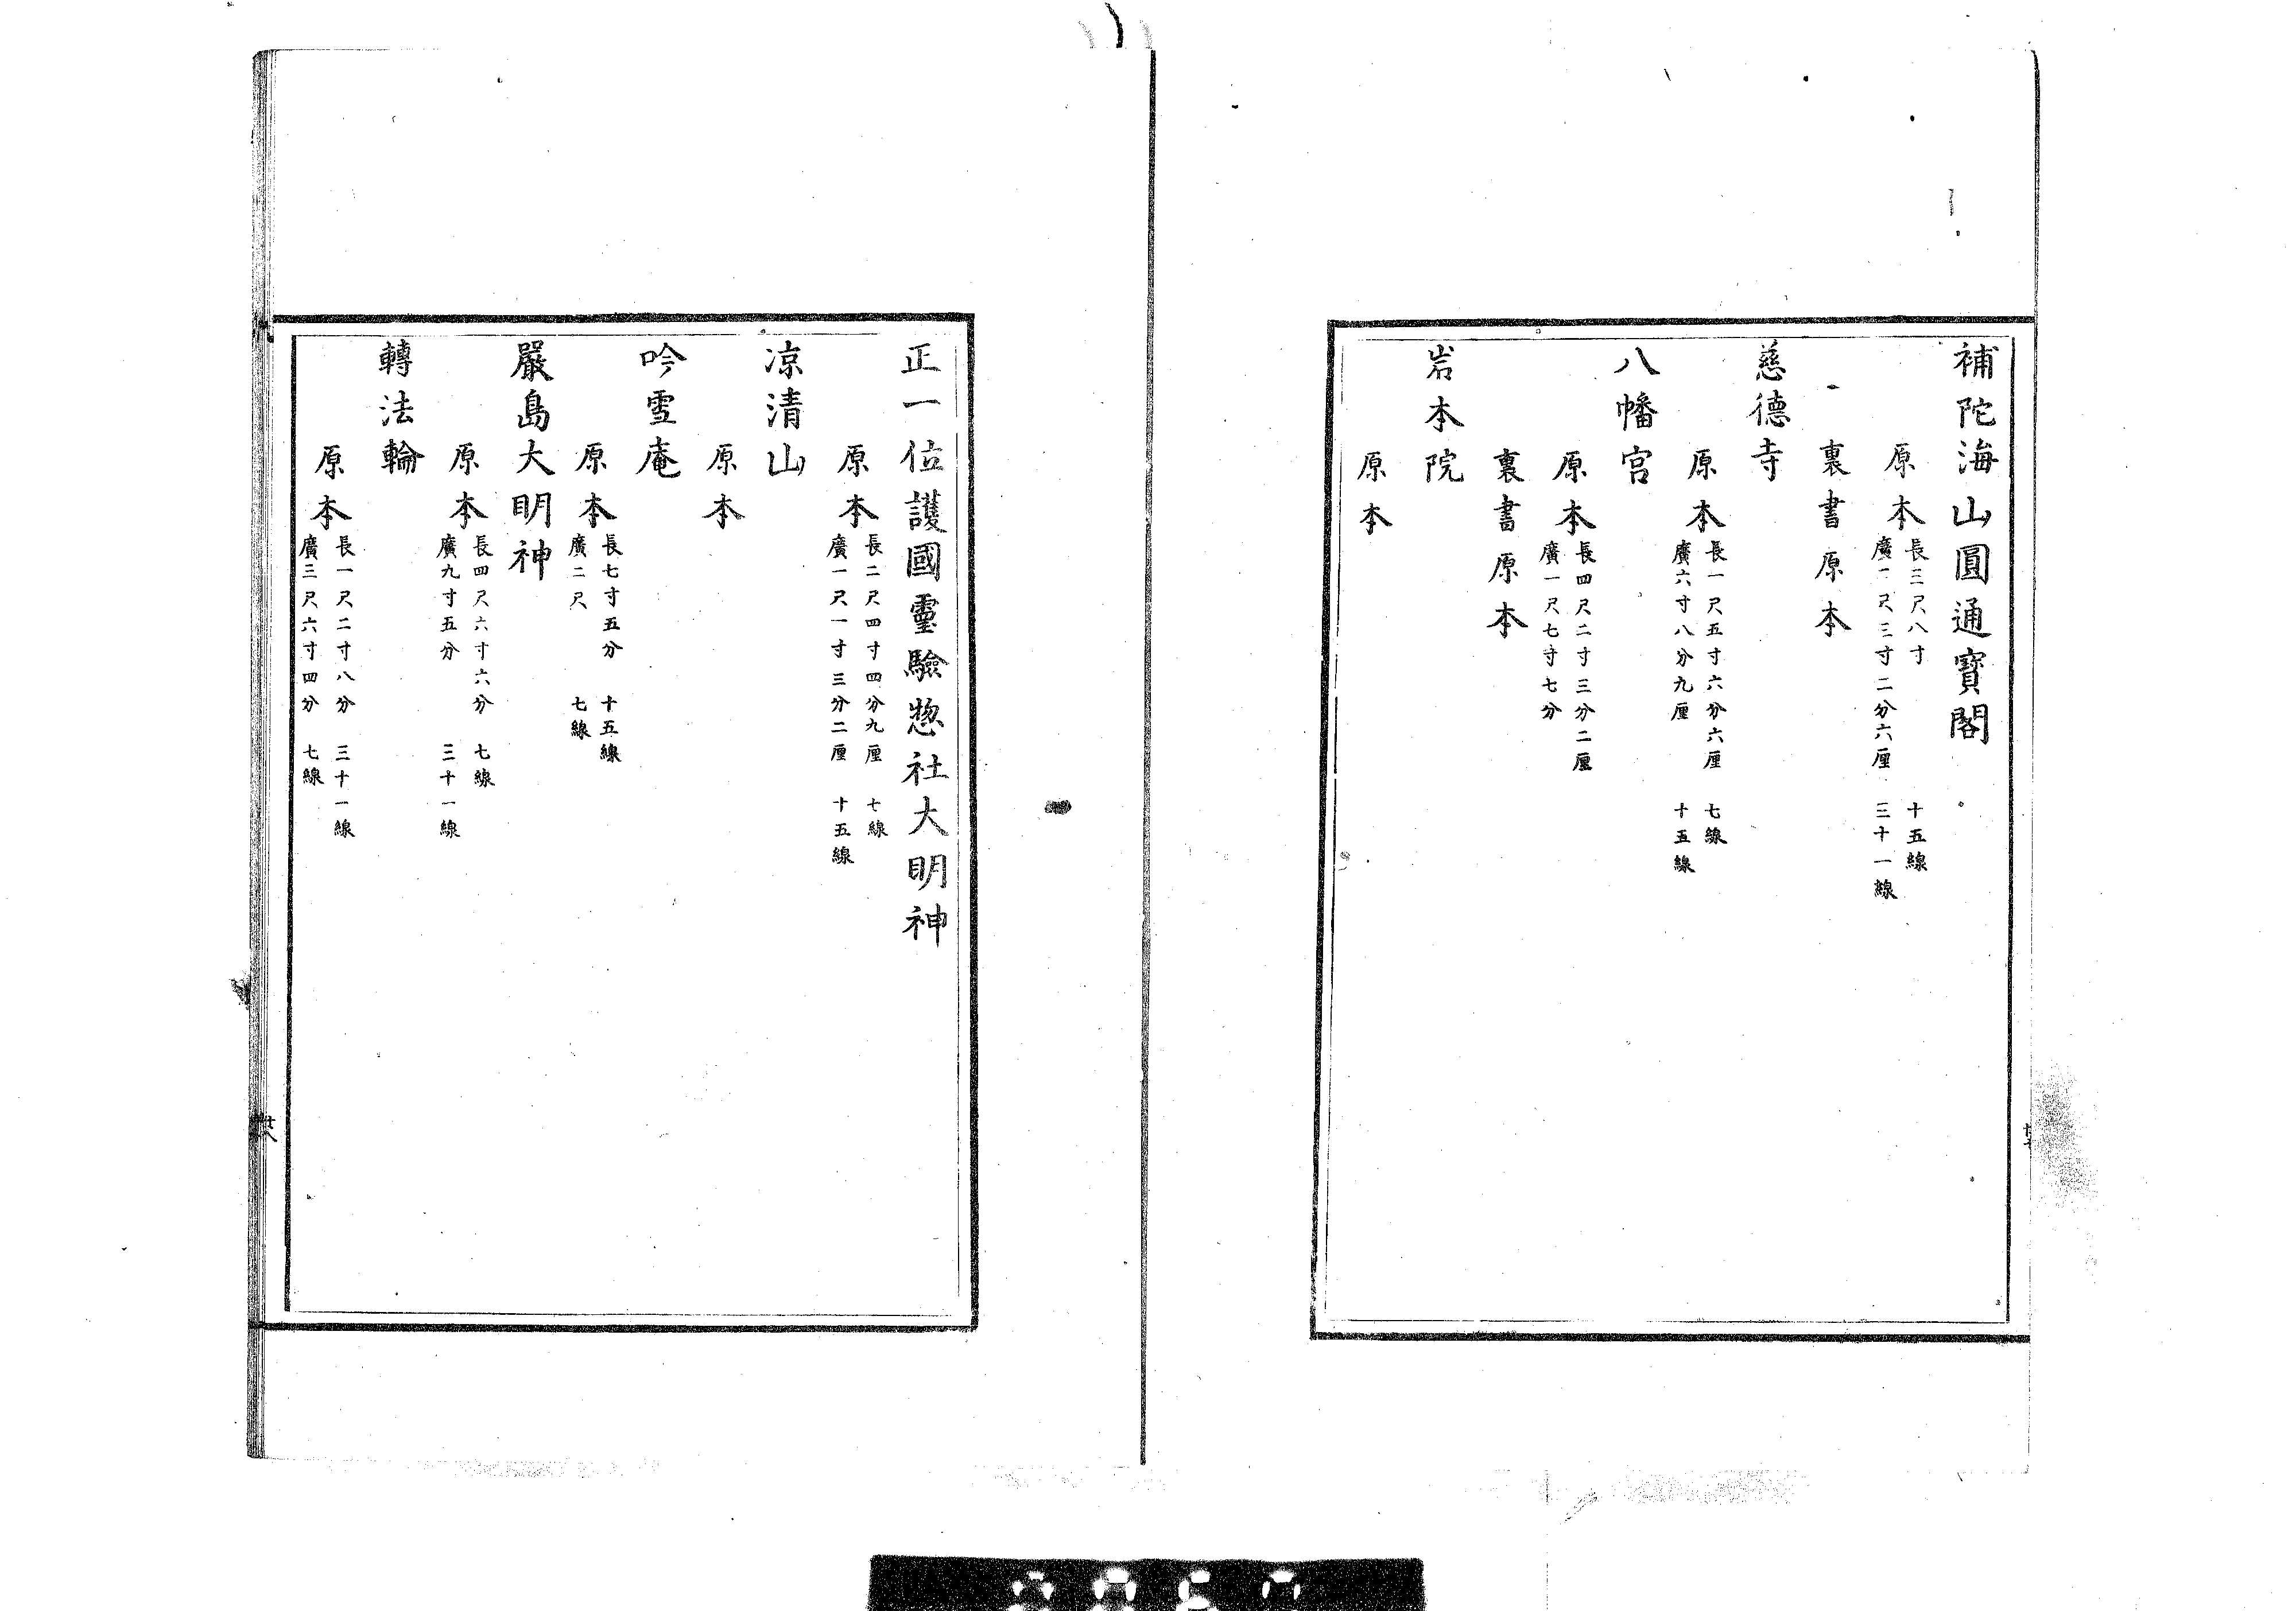 補陀海山圓通寶閣
原本 長三尺八寸 十五線
廣一尺三寸二分六厘 三十一線
裏書原本
慈德寺
原本 長一尺五寸六分六厘 七線
廣六寸八分九厘 十五線
八幡宮
原本 長四尺二寸三分二厘
廣一尺七寸七分
裏書原本
岩本院
原本
正一位護國靈驗惣社大明神
原本 長二尺四寸四分九厘 七線
廣一尺一寸三分二厘 十五線
凉清山
原本
吟雪庵
原本 長七寸五分 十五線
廣二尺 七線
嚴島大明神
原本 長四尺六寸六分 七線
廣九寸五分 三十一線
轉法輪
原本 長一尺二寸八分 三十一線
廣三尺六寸四分 七線
廿八